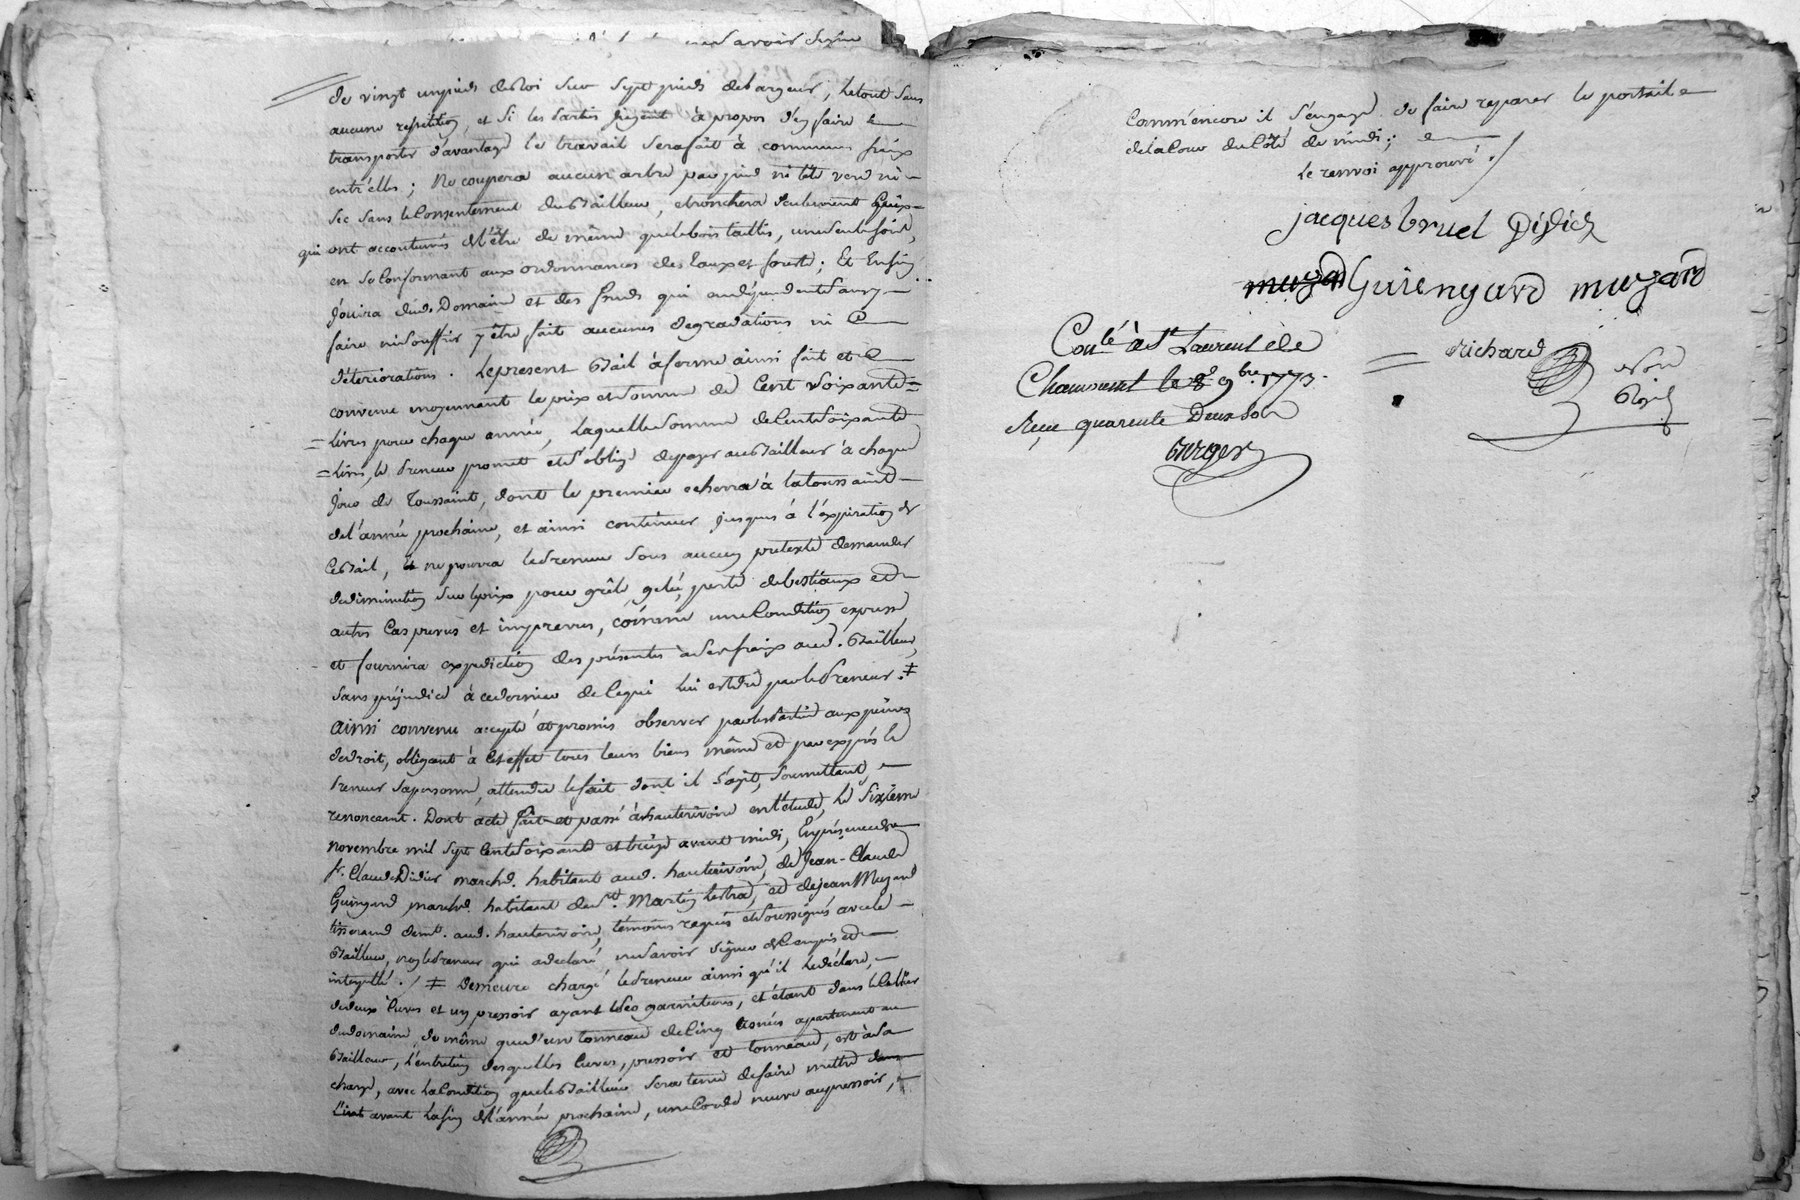 ne savoir signer
de vingt un pieds de Roi sur sept pieds de Largeur, le tout sans
aucune repetition, et si les Parties jugent à propos d'en faire
transporter d'avantage le travail sera fait à communs fraix
entr'elles ; Ne coupera aucun arbre par pied ni tête verd ni
sec sans le Consentement du Bailleur, ebranchera seulement Ceux
qui ont accoutumés de l'être de même que le bois taillis, une seule fois,
en se Conformant aux ordonnances des Eaux et forets ; Et Enfin
Jouira dud. Domaine et des fonds qui en dépendent sans y
faire ni souffrir y être fait aucunes degradations ni
déteriorations. Le present Bail à ferme ainsi fait et
convenu moyennant le prix et somme de Cent soixante
Livres pour chaque année, Laquelle somme de Cent soixante
Livres, le Preneur promet et s'oblige de payer au Bailleur à chaque
Jour de Toussaint, dont le premier echerra à la toussaint
de l'année prochaine, et ainsi continuer jusques à l'éxpiration de
Ce Bail, ne pourra le Preneur sous aucun pretexte demander
de diminution sur le prix pour grêle, gelée, perte de bestiaux et
autres Cas prevus et imprevus, comme une Condition expresse
et fournira expedition des présentes à ses fraix aud. Bailleur,
sans préjudice à ce dernier de Ce qui lui est dû par le Preneur. ⧧
ainsi convenu accepté et promis observer par les Parties aux peines
de droit, obligeant à Cet effet tous leurs biens même et par exprès le
Preneur sa personne, attendu le fait dont il s'agit, soumettant,
renonceant. Dont acte fait et passé à hauterivoire en l'étude, le sixieme
novembre mil sept Cent soixante et treize avant midi, En présence de
sr. Claude Didier march̃d. habitant aud. hauterivoire, de Jean-Claude
Guingard march̃d. habitant de St. Martin Lestra, et de jean Muzard
tisserand demt. aud. hauterivoire, témoins requis et soussignés avec le
Bailleur, non le Preneur qui a declaré ne savoir signer de ce enquis et
interpellé ./ ⧧ Demeure chargé le Preneur ainsi qu'il le déclare,
de deux Cuves et un pressoir ayant ses garnitures, et étant dans le Cellier
du domaine, de même que d'un tonneau de Cinq asnées apartenant au
Bailleur, l'entretien desquelles Cuves, pressoir et tonneau, est à sa
charge, avec la Condition que le Bailleur sera tenu de faire mettre
avant la fin de l'année prochaine, une Corde neuve au pressoir,
Comm'encore il s'engage de faire reparer le portail
de la Cour du Côté de midi ;
le renvoi approuvé ./
jacques bruel Didier
muzard Guiengard muzard
Richard
Conlé à St Laurent de
Chamousset le 8 9bre 1773.
Reçu quarente Deux sols